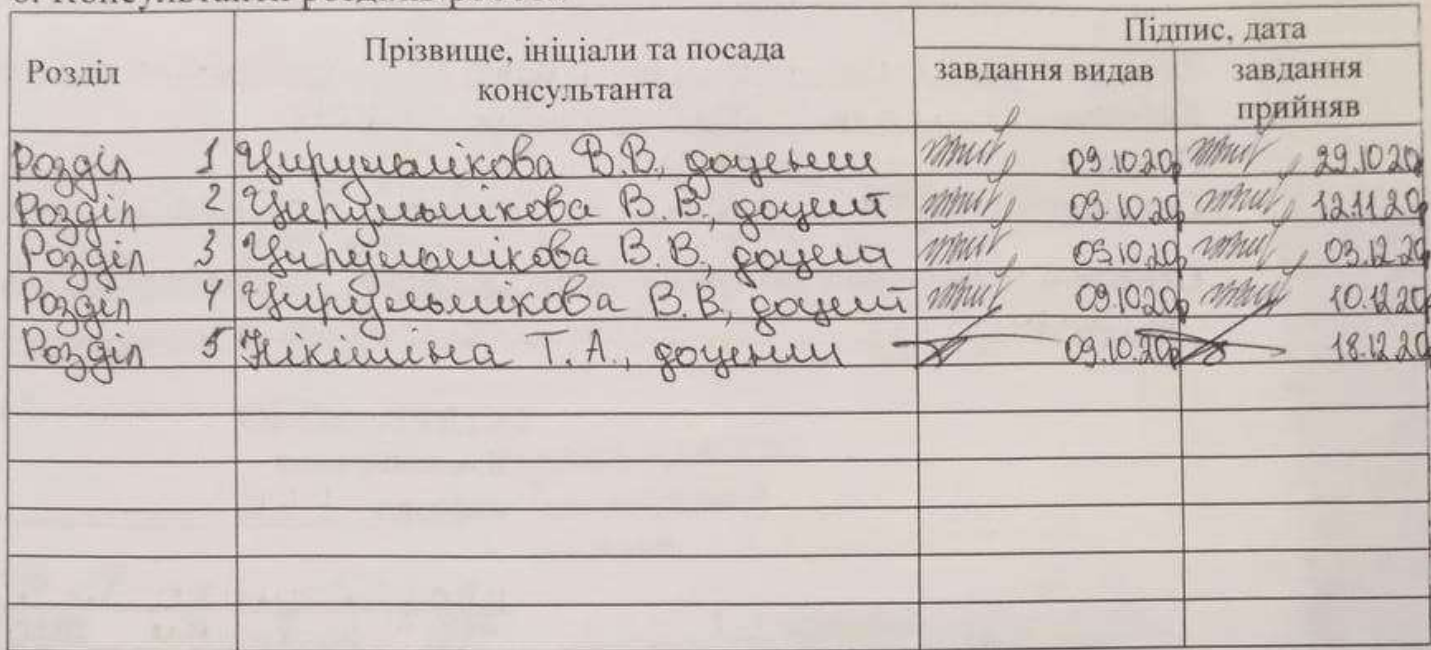 Розділ
Прізвище, ініціали та посада
консультанта
Підпис, дата
завдання видав
завдання
прийняв
Розділ 1 Цирульнікова В.В., доцент 09.10.20р 29.10.20р
Розділ 2 Цирульнікова В.В., доцент 09.10.20р 12.11.20р
Розділ 3 Цирульнікова В.В., доцент 09.10.20р 03.12.20
Розділ 4 Цирульнікова В.В., доцент 09.10.20р 10.12.20р
Розділ 5 Нікішіна Т.А., доцент 09.10.20р 18.12.20